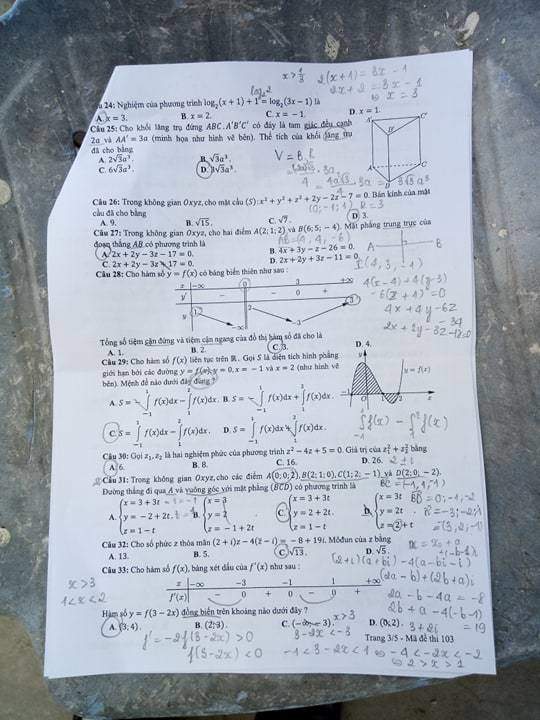 x > 1/3 2(x+1) = 3x - 1
log₂2 2x + 2 = 3x - 1
⇔ x = 3
u 24: Nghiệm của phương trình log₂(x + 1) + 1 = log₂(3x − 1) là
A. x = 3. B. x = 2. C. x = −1. D. x = 1.
Câu 25: Cho khối lăng trụ đứng ABC.A'B'C' có đáy là tam giác đều cạnh
2a và AA' = 3a (minh họa như hình vẽ bên). Thể tích của khối lăng trụ
đã cho bằng
A. 2√3a³. B. √3a³. V = B.h
C. 6√3a³. D. 3√3a³.
A' C' B' A C B
Câu 26: Trong không gian Oxyz, cho mặt cầu (S): x² + y² + z² + 2y − 2z − 7 = 0. Bán kính của mặt
cầu đã cho bằng (0; -1; 1) R = 3
A. 9. B. √15. C. √7. D. 3.
Câu 27: Trong không gian Oxyz, cho hai điểm A(2; 1; 2) và B(6; 5; −4). Mặt phẳng trung trực của
đoạn thẳng AB có phương trình là AB = (4, 4, -6)
A. 2x + 2y − 3z − 17 = 0. B. 4x + 3y − z − 26 = 0.
C. 2x + 2y − 3z + 17 = 0. D. 2x + 2y + 3z − 11 = 0.
A B
I(4, 3, -1)
Câu 28: Cho hàm số y = f(x) có bảng biến thiên như sau :
4(x-4) + 4(y-3)
-6(z+1) = 0
4x + 4y - 6z
x −∞ 0 3 +∞
y' − − 0 +
y 1 −∞ 2 −3 3
Tổng số tiệm cận đứng và tiệm cận ngang của đồ thị hàm số đã cho là
A. 1. B. 2. C. 3. D. 4.
Câu 29: Cho hàm số f(x) liên tục trên ℝ. Gọi S là diện tích hình phẳng
giới hạn bởi các đường y = f(x), y = 0, x = −1 và x = 2 (như hình vẽ
bên). Mệnh đề nào dưới đây đúng ?
y y = f(x) −1 O 1 2 x
A. S = −∫₋₁¹ f(x)dx − ∫₁² f(x)dx. B. S = −∫₋₁¹ f(x)dx + ∫₁² f(x)dx.
C. S = ∫₋₁¹ f(x)dx − ∫₁² f(x)dx. D. S = ∫₋₁¹ f(x)dx + ∫₁² f(x)dx.
∫₋₁¹ f(x) - ∫₁² f(x)
Câu 30: Gọi z₁, z₂ là hai nghiệm phức của phương trình z² − 4z + 5 = 0. Giá trị của z₁² + z₂² bằng
A. 6. B. 8. C. 16. D. 26. 2 ± i
Câu 31: Trong không gian Oxyz, cho các điểm A(0; 0; 2), B(2; 1; 0), C(1; 2; −1) và D(2; 0; −2).
Đường thẳng đi qua A và vuông góc với mặt phẳng (BCD) có phương trình là BC = (-1, 1, -1)
A. {x = 3 + 3t; y = −2 + 2t; z = 1 − t. B. {x = 3; y = 2; z = −1 + 2t C. {x = 3 + 3t; y = 2 + 2t; z = 1 − t. D. {x = 3t; y = 2t; z = 2 + t
BD = 0; -1; -2
= (3, 2, -1)
Câu 32: Cho số phức z thỏa mãn (2 + i)z − 4(z̄ − i) = −8 + 19i. Môđun của z bằng
A. 13. B. 5. C. √13. D. √5.
(2+i)(a+bi) - 4(a-bi-i)
(2a-b) + (2b+a)i
Câu 33: Cho hàm số f(x), bảng xét dấu của f'(x) như sau :
x > 3
1 < x < 2
x −∞ −3 −1 1 +∞
f'(x) − 0 + 0 − 0 +
2a - b - 4a = -8
2b + a - 4(-b-1)
= 19
Hàm số y = f(3 − 2x) đồng biến trên khoảng nào dưới đây ?
A. (3; 4). B. (2; 3). C. (−∞; − 3). D. (0; 2). 3 + 2i
x > 3
3 - 2x < -3
f' = -2f'(3-2x) > 0
f'(3-2x) < 0
-1 < 3 - 2x < 1 ⇔ -4 < -2x < -2
⇔ 2 > x > 1
Trang 3/5 - Mã đề thi 103